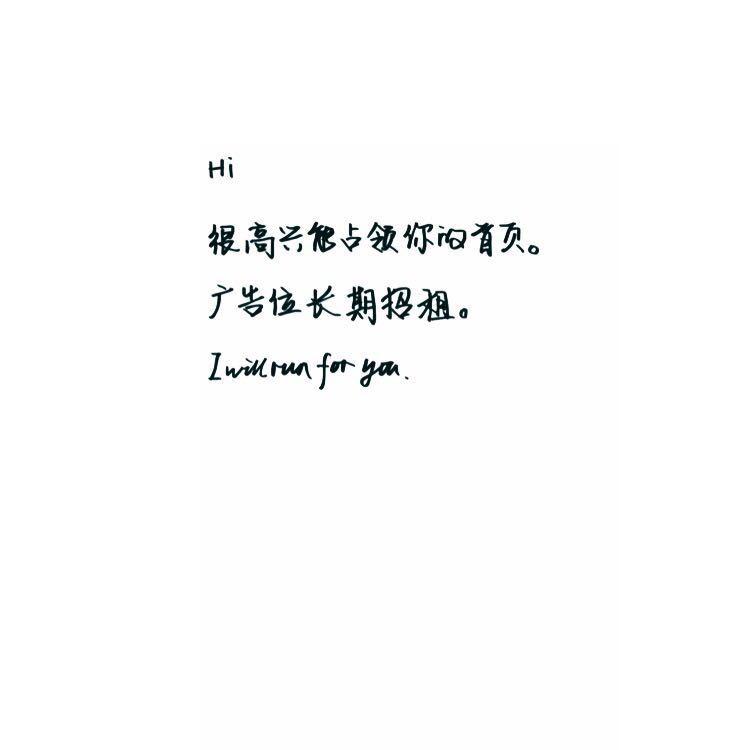 Hi
很高兴能占领你的首页。
广告位长期招租。
I will run for you.